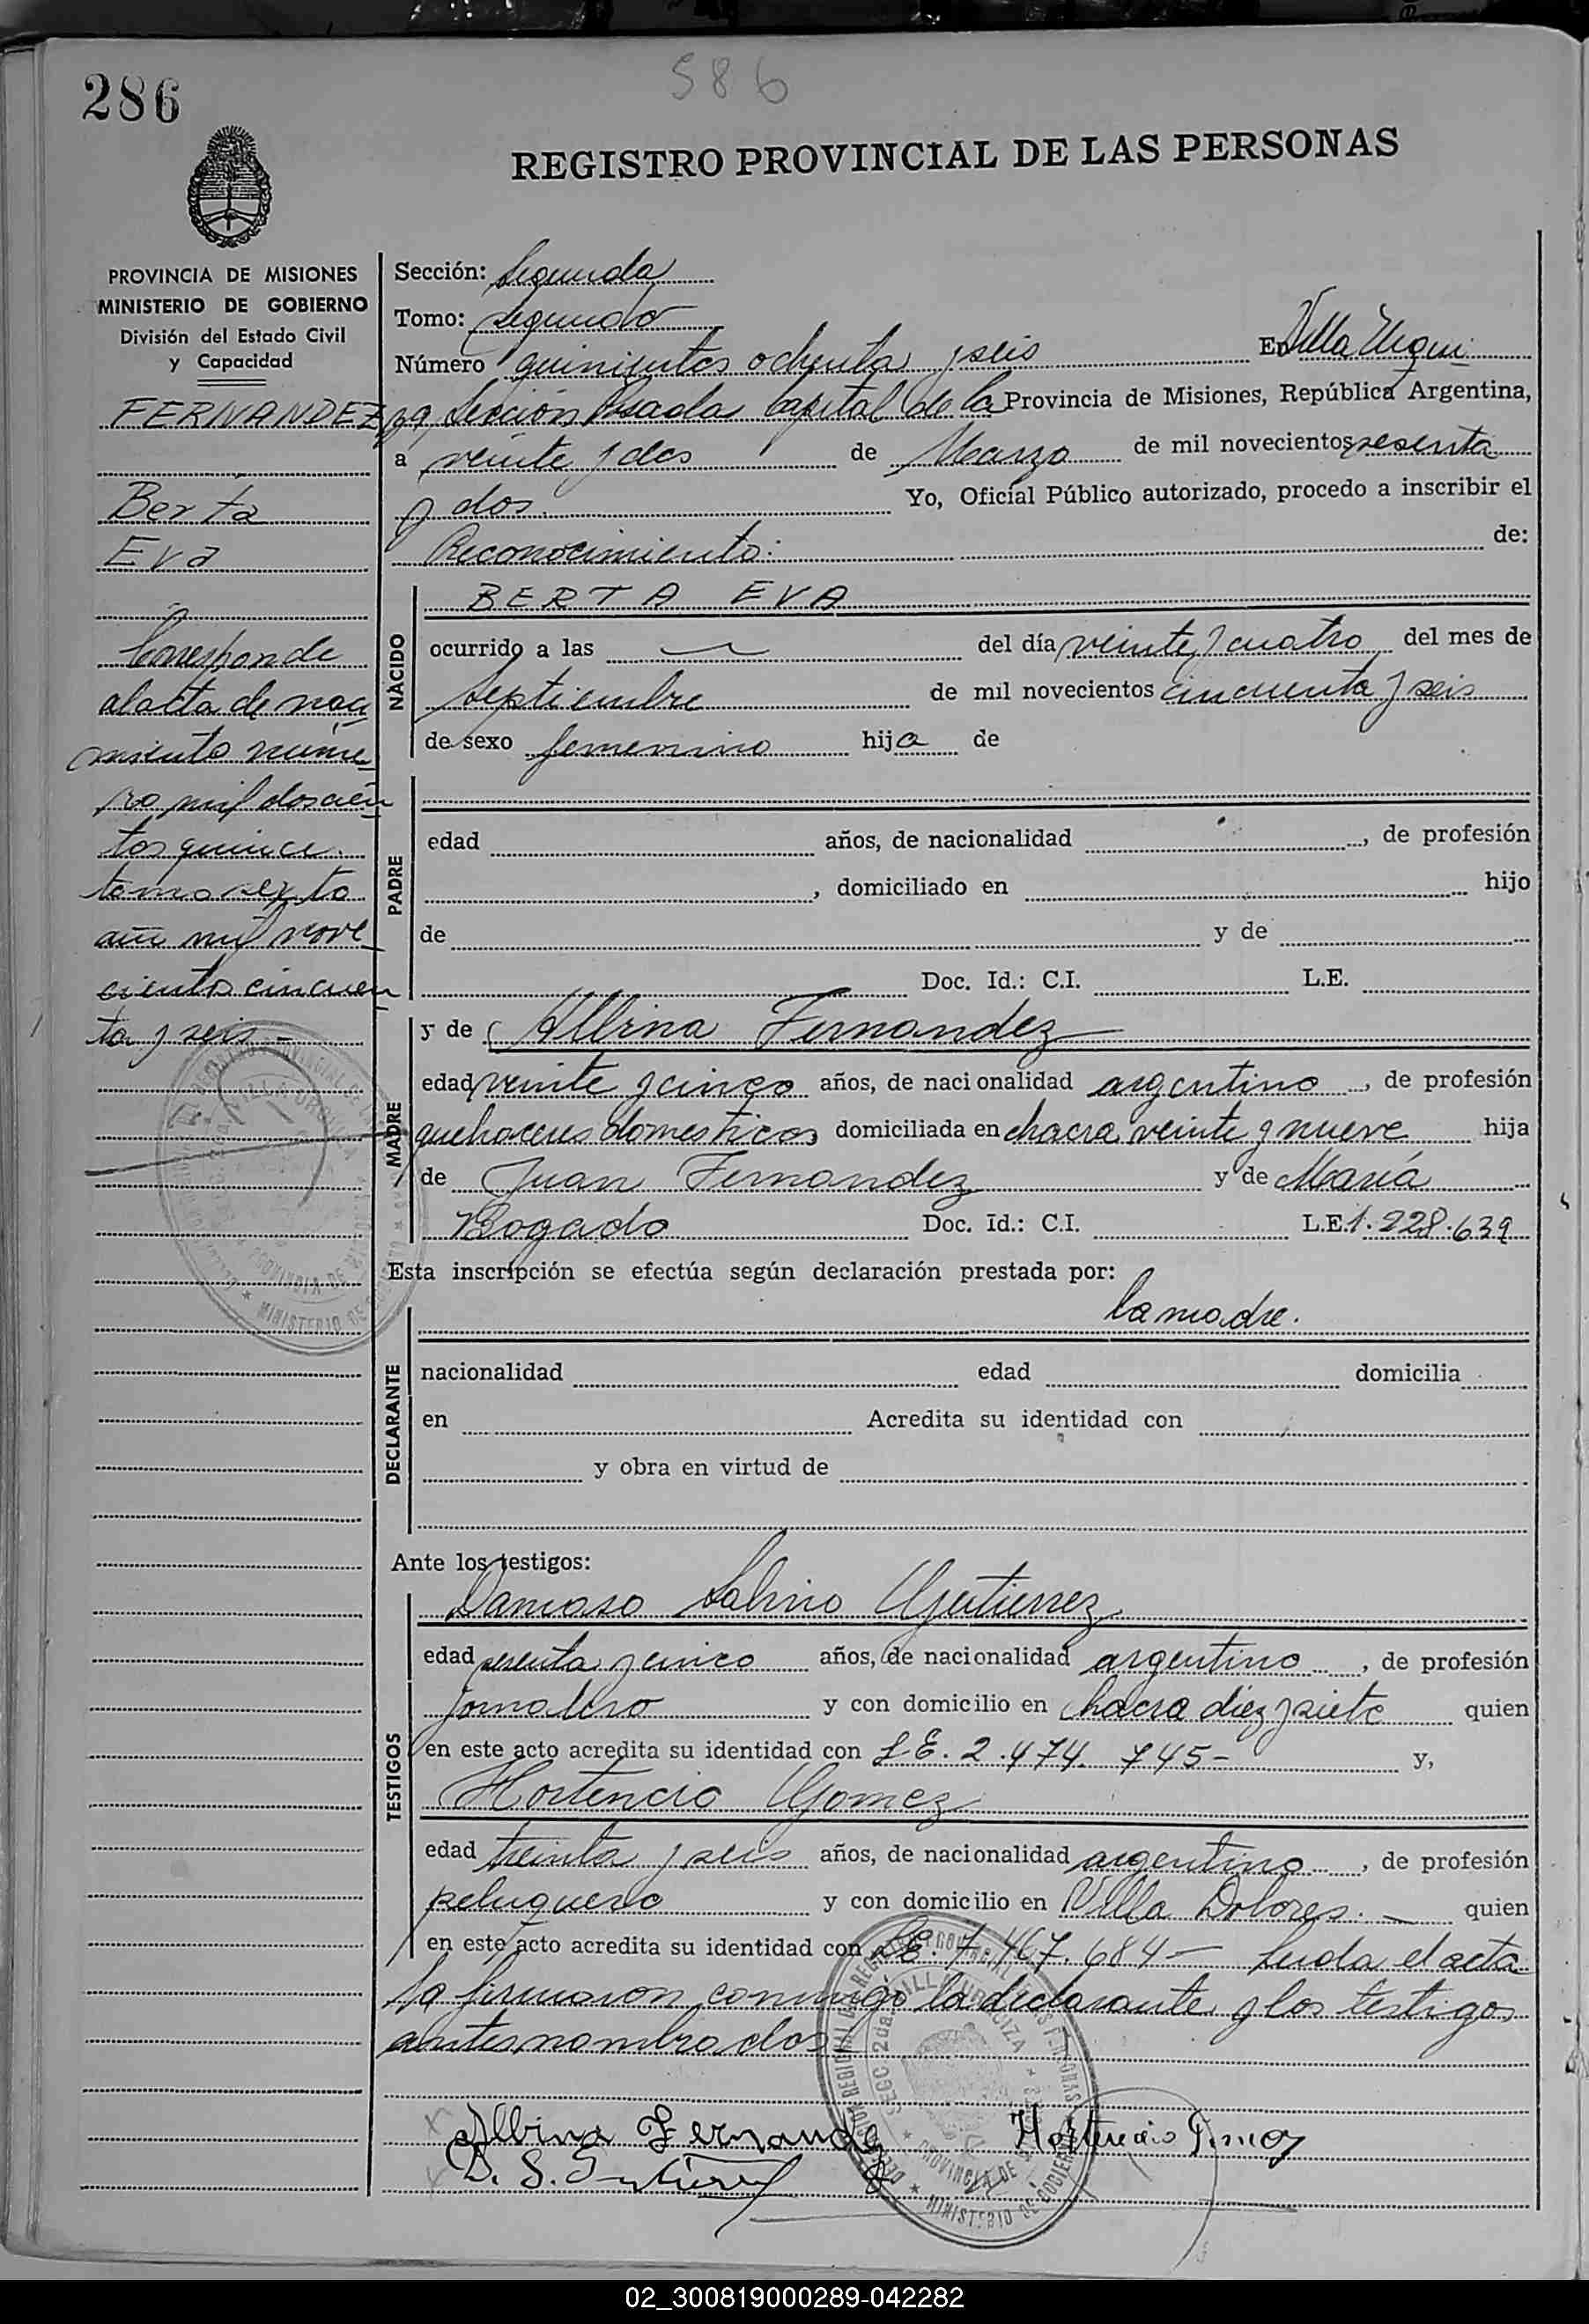 286
586
REGISTRO PROVINCIAL DE LAS PERSONAS
PROVINCIA DE MISIONES
MINISTERIO DE GOBIERNO
División del Estado Civil
y Capacidad
FERNANDEZ
Berta
Eva
Corresponde
al acta de naci
miento núme
ro mil doscien
tos quince
tomo sexto
año mil nove
cientos cincuen
ta y seis -
Sección: Segunda
Tomo: segundo
Número quinientos ochenta y seis En Villa Urqui
za, Sección Posadas Capital de la Provincia de Misiones, República Argentina,
a veinte y dos de Marzo de mil novecientos sesenta
y dos. Yo, Oficial Público autorizado, procedo a inscribir el
Reconocimiento: de:
NACIDO
BERTA EVA
ocurrido a las del día veinte y cuatro del mes de
Septiembre de mil novecientos cincuenta y seis
de sexo femenino hija de
PADRE
edad años, de nacionalidad , de profesión
, domiciliado en hijo
de y de
Doc. Id.: C.I. L.E.
MADRE
y de Albina Fernandez
edad veinte y cinco años, de nacionalidad argentino , de profesión
quehaceres domesticos domiciliada en chacra veinte y nueve hija
de Juan Fernandez y de María
Bogado Doc. Id.: C.I. L.E. 1.228.639
Esta inscripción se efectúa según declaración prestada por:
la madre.
DECLARANTE
nacionalidad edad domicilia
en Acredita su identidad con
y obra en virtud de
Ante los testigos:
TESTIGOS
Damaso Sabino Gutierrez
edad sesenta y cinco años, de nacionalidad argentino , de profesión
jornalero y con domicilio en chacra diez y siete quien
en este acto acredita su identidad con L.E. 2.474.745- y,
Hortencio Gomez
edad treinta y seis años, de nacionalidad argentino , de profesión
peluquero y con domicilio en Villa Dolores. - quien
en este acto acredita su identidad con L.E. 7.467.684 - Leida el acta
la firmaron conmigo la declarante y los testigos
antes nombrados
Albina Fernandez Hortencio Gomez
D. S. Gutierrez
02_300819000289-042282